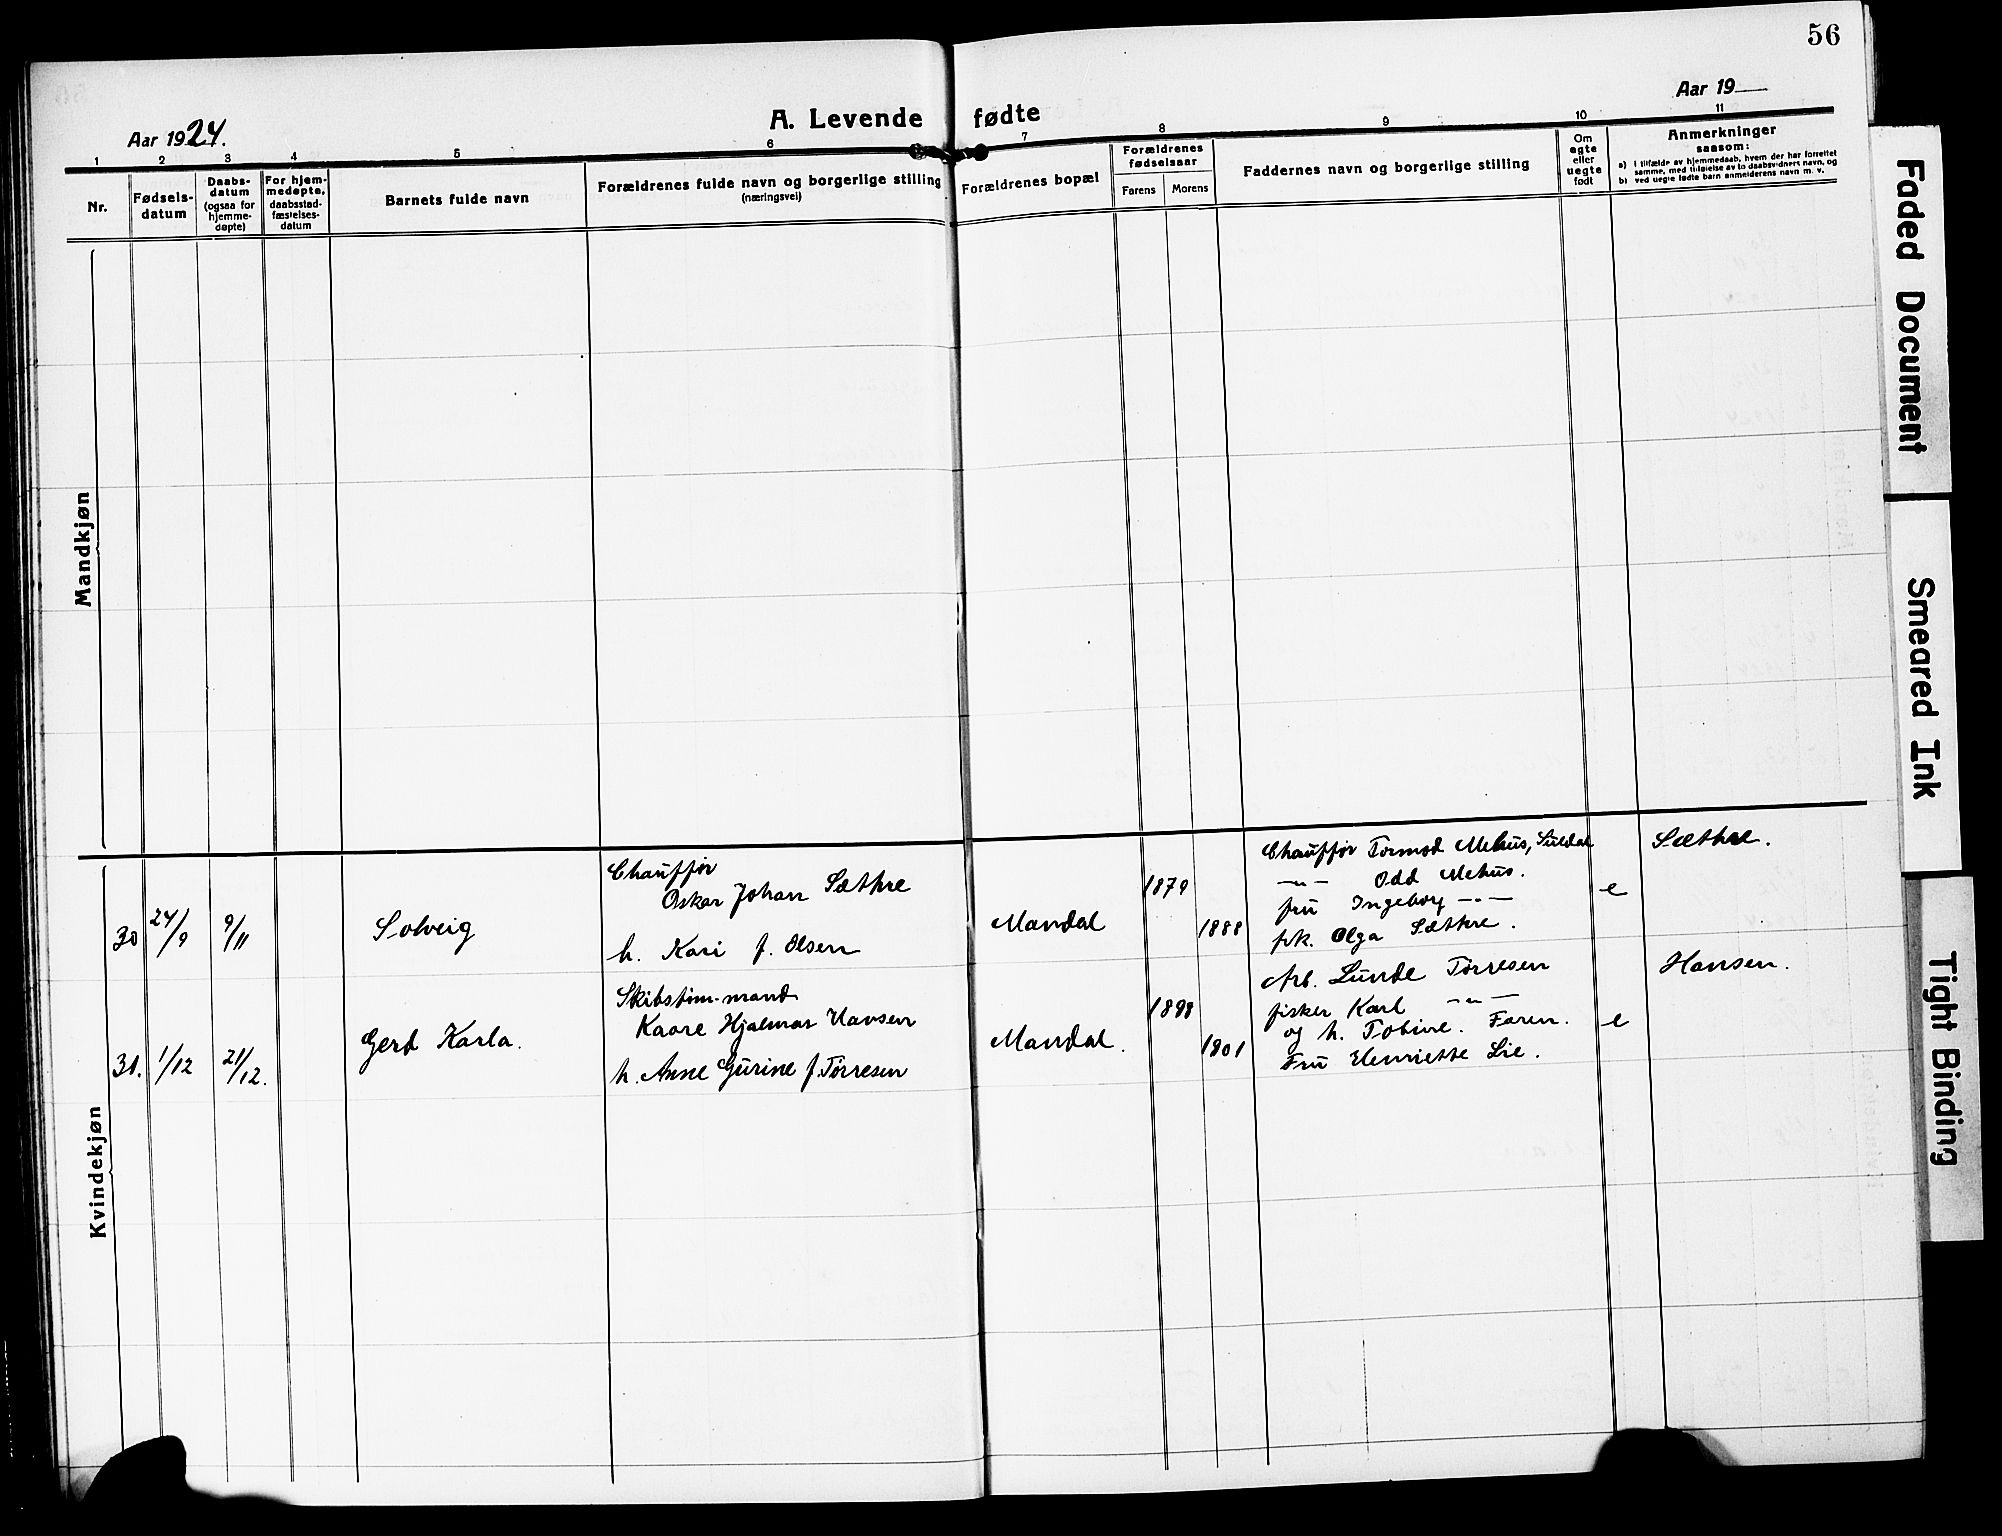 56
Aar 1924.
A. Levende fødte
Aar 19
1 2 3 4 5 6 7 8 9 10 11
Nr.
Fødsels-
datum
Daabs-
datum
(ogsaa for
hjemme-
døpte)
For hjem-
medøpte,
daabsstad-
fæstelses-
datum
Barnets fulde navn
Forældrenes fulde navn og borgerlige stilling
(næringsvei)
Forældrenes bopæl
Forældrenes
fødselsaar
Farens Morens
Faddernes navn og borgerlige stilling
Om
egte
eller
uegte
født
Anmerkninger
saasom:
a) I tilfælde av hjemmedaab, hvem der har forrettet
samme, med tilføielse av to daabsvidners navn, og
b) ved uegte fødte barn anmelderens navn m. v.
Mandkjøn
Kvindekjøn
30 24/9 9/11
Solveig
Chauffør
Oskar Johan Sæthre
h. Kari f. Olsen
Mandal
1879
1888
Chauffør Tormod Mehus, Suldal
—"— Odd Mehus.
fru Ingeborg —"—
frk. Olga Sæthre.
e
Sæthre.
31. 1/12 21/12.
Gerd Karla.
Skibstøm.mand
Kaare Hjalmar Hansen
h. Anne Gurine f. Tørresen
Mandal.
1898
1901
Arb. Lunde Tørresen
fisker Karl —"—
og h. Tobine. Faren.
Fru Henriette Lie.
e
Hansen.
Faded Document
Smeared Ink
Tight Binding